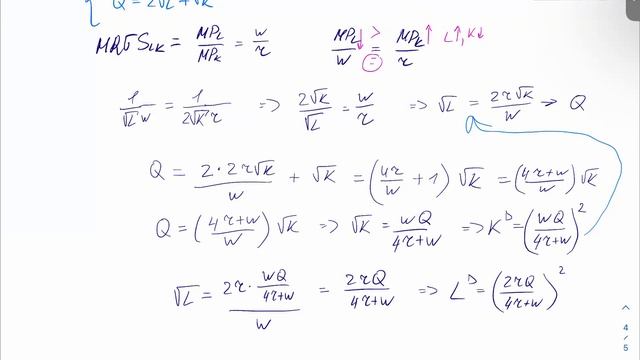 Q = 2√L + √K
MRTS_LK = MP_L/MP_K = w/r    MP_L↓/w > = MP_K↑/r  L↑, K↓
1/(√L w) = 1/(2√K r) => 2√K/√L = w/r => √L = 2r√K/w → Q
Q = 2·2r√K/w + √K = (4r/w + 1)√K = ((4r+w)/w)√K
Q = ((4r+w)/w)√K => √K = wQ/(4r+w) => K^D = (wQ/(4r+w))^2
√L = (2r · wQ/(4r+w))/w = 2rQ/(4r+w) => L^D = (2rQ/(4r+w))^2
4
/
5